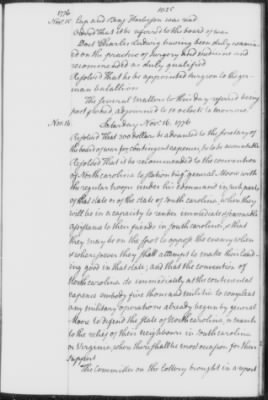 1776 1025
Nov. 15 Cap and Benj Harrison was read
Ordered that it be referred to the board of war
Doct Charles Ludwig having been duly examin-
ed on the practice of surgery and medicine and
recommended as duly qualified
Resolved that he be appointed surgeon to the ger-
man battalion
The several matters to this day referred being
post poned adjourned to 10 o'clock to morrow
Saturday Nov 16. 1776
Nov. 16. Resolved that 200 dollars be advanced to the secretary of
the board of war for contingent expences, he to be accountable
Resolved That it be recommended to the convention
of North carolina to station brig general Moore with
the regular troops under his command in such parts
of that state or of the state of South carolina, when they
will be in a capacity to render immediate & favorable
assistance to their friends in South carolina, so that
they may be on the spot to oppose the enemy when
& wheresoever they shall attempt to make their land-
ing good in that state; and that the convention of
North carolina do immediately at the continental
expence embody five thousand militia to compleat
any military operations already begun by general
Moore to defend the state of North carolina, or march
to the relief of their neighbours in South carolina
or Virginia, when there shall be most occasion for their
support
The Committee on the lottery brought in a report